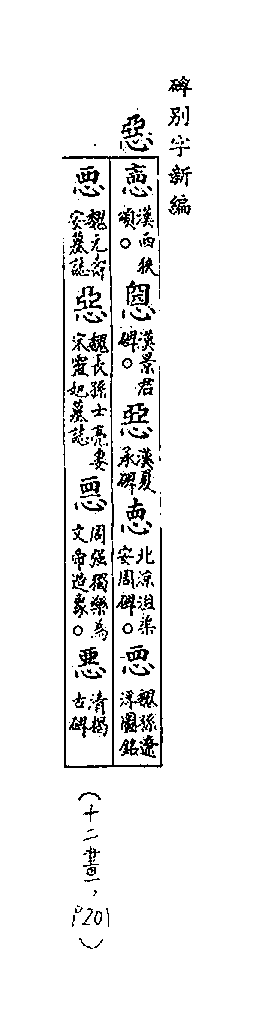 碑別字新編
惡
漢西狹頌。
漢景君碑。
惡漢夏承碑
北涼沮渠安周碑。
魏孫遼浮圖銘
魏元斎安墓誌
惡魏長孫士亮妻宋靈妃墓誌
周強獨樂為文帝造象。
清楊古碑
(十二畫,P201)